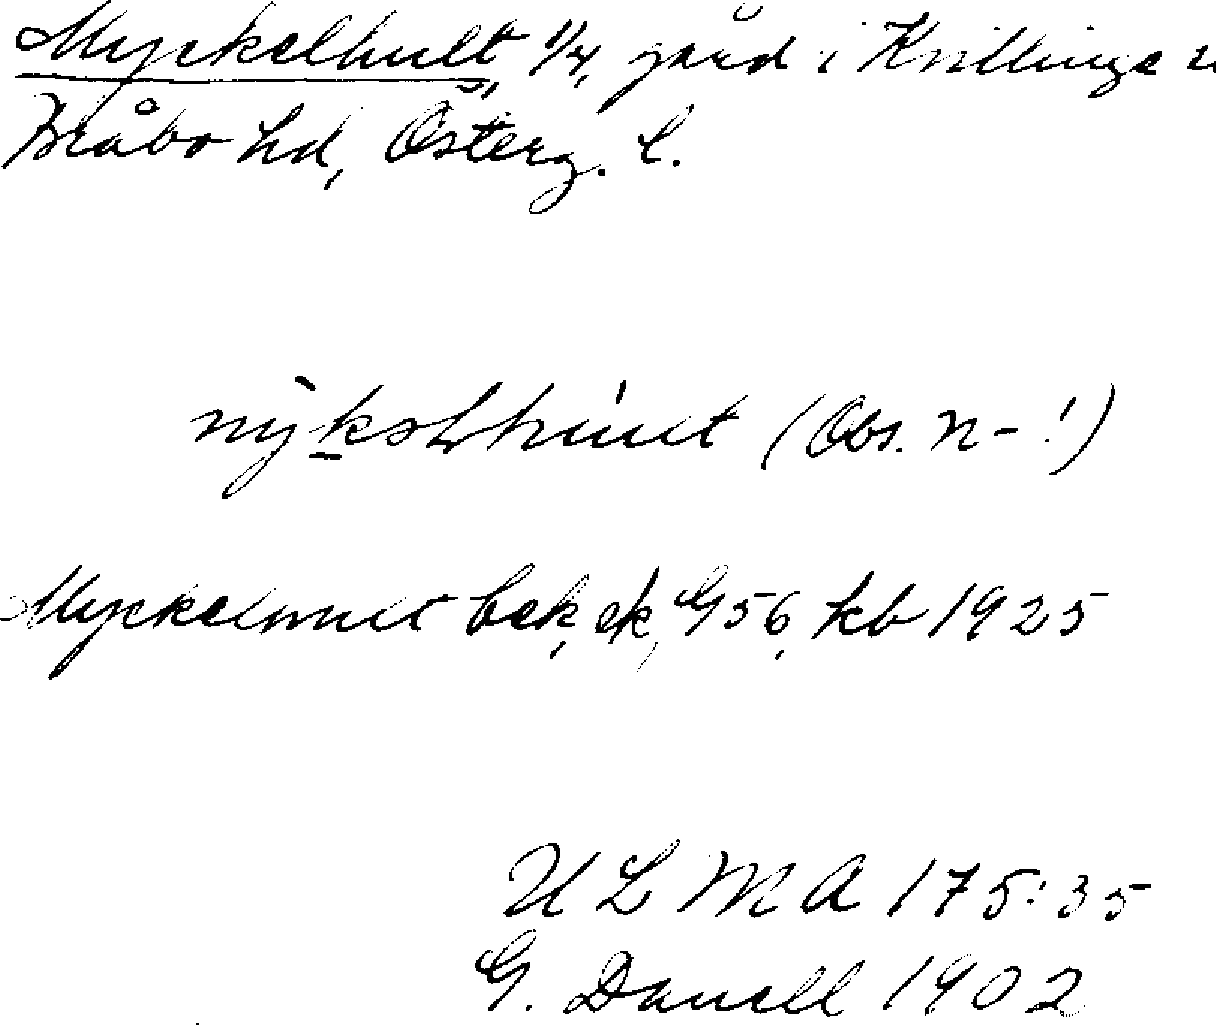 Myckelhult, 1/4, gård i Kvillinge
Bråbo hd, Österg. l.
(Obs. n-!)
Myckelmult bek, ek, G56, kb 1925
ULMA 175:35
G. Danell 1902